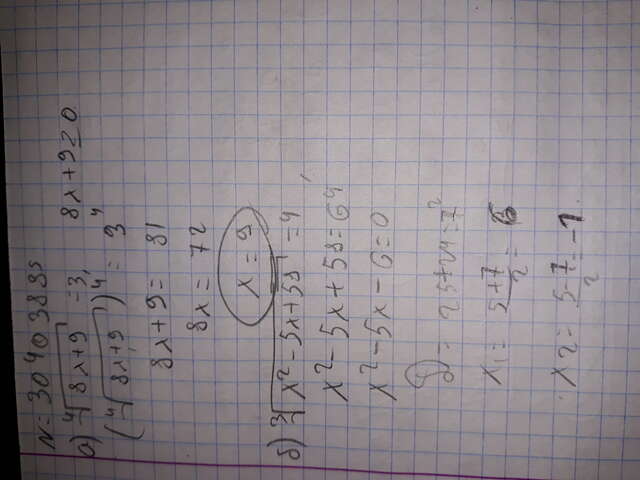 N=30403885
а) ⁴√(8x+9) = 3, 8x+9≥0
(⁴√(8x+9))⁴ = 3⁴
8x+9 = 81
8x = 72
x = 9
б) ³√(x²-5x+58) = 4,
x²-5x+58=64
x²-5x-6=0
D = 25+24=7²
x₁ = (5+7)/2 = 6
x₂ = (5-7)/2 = -1